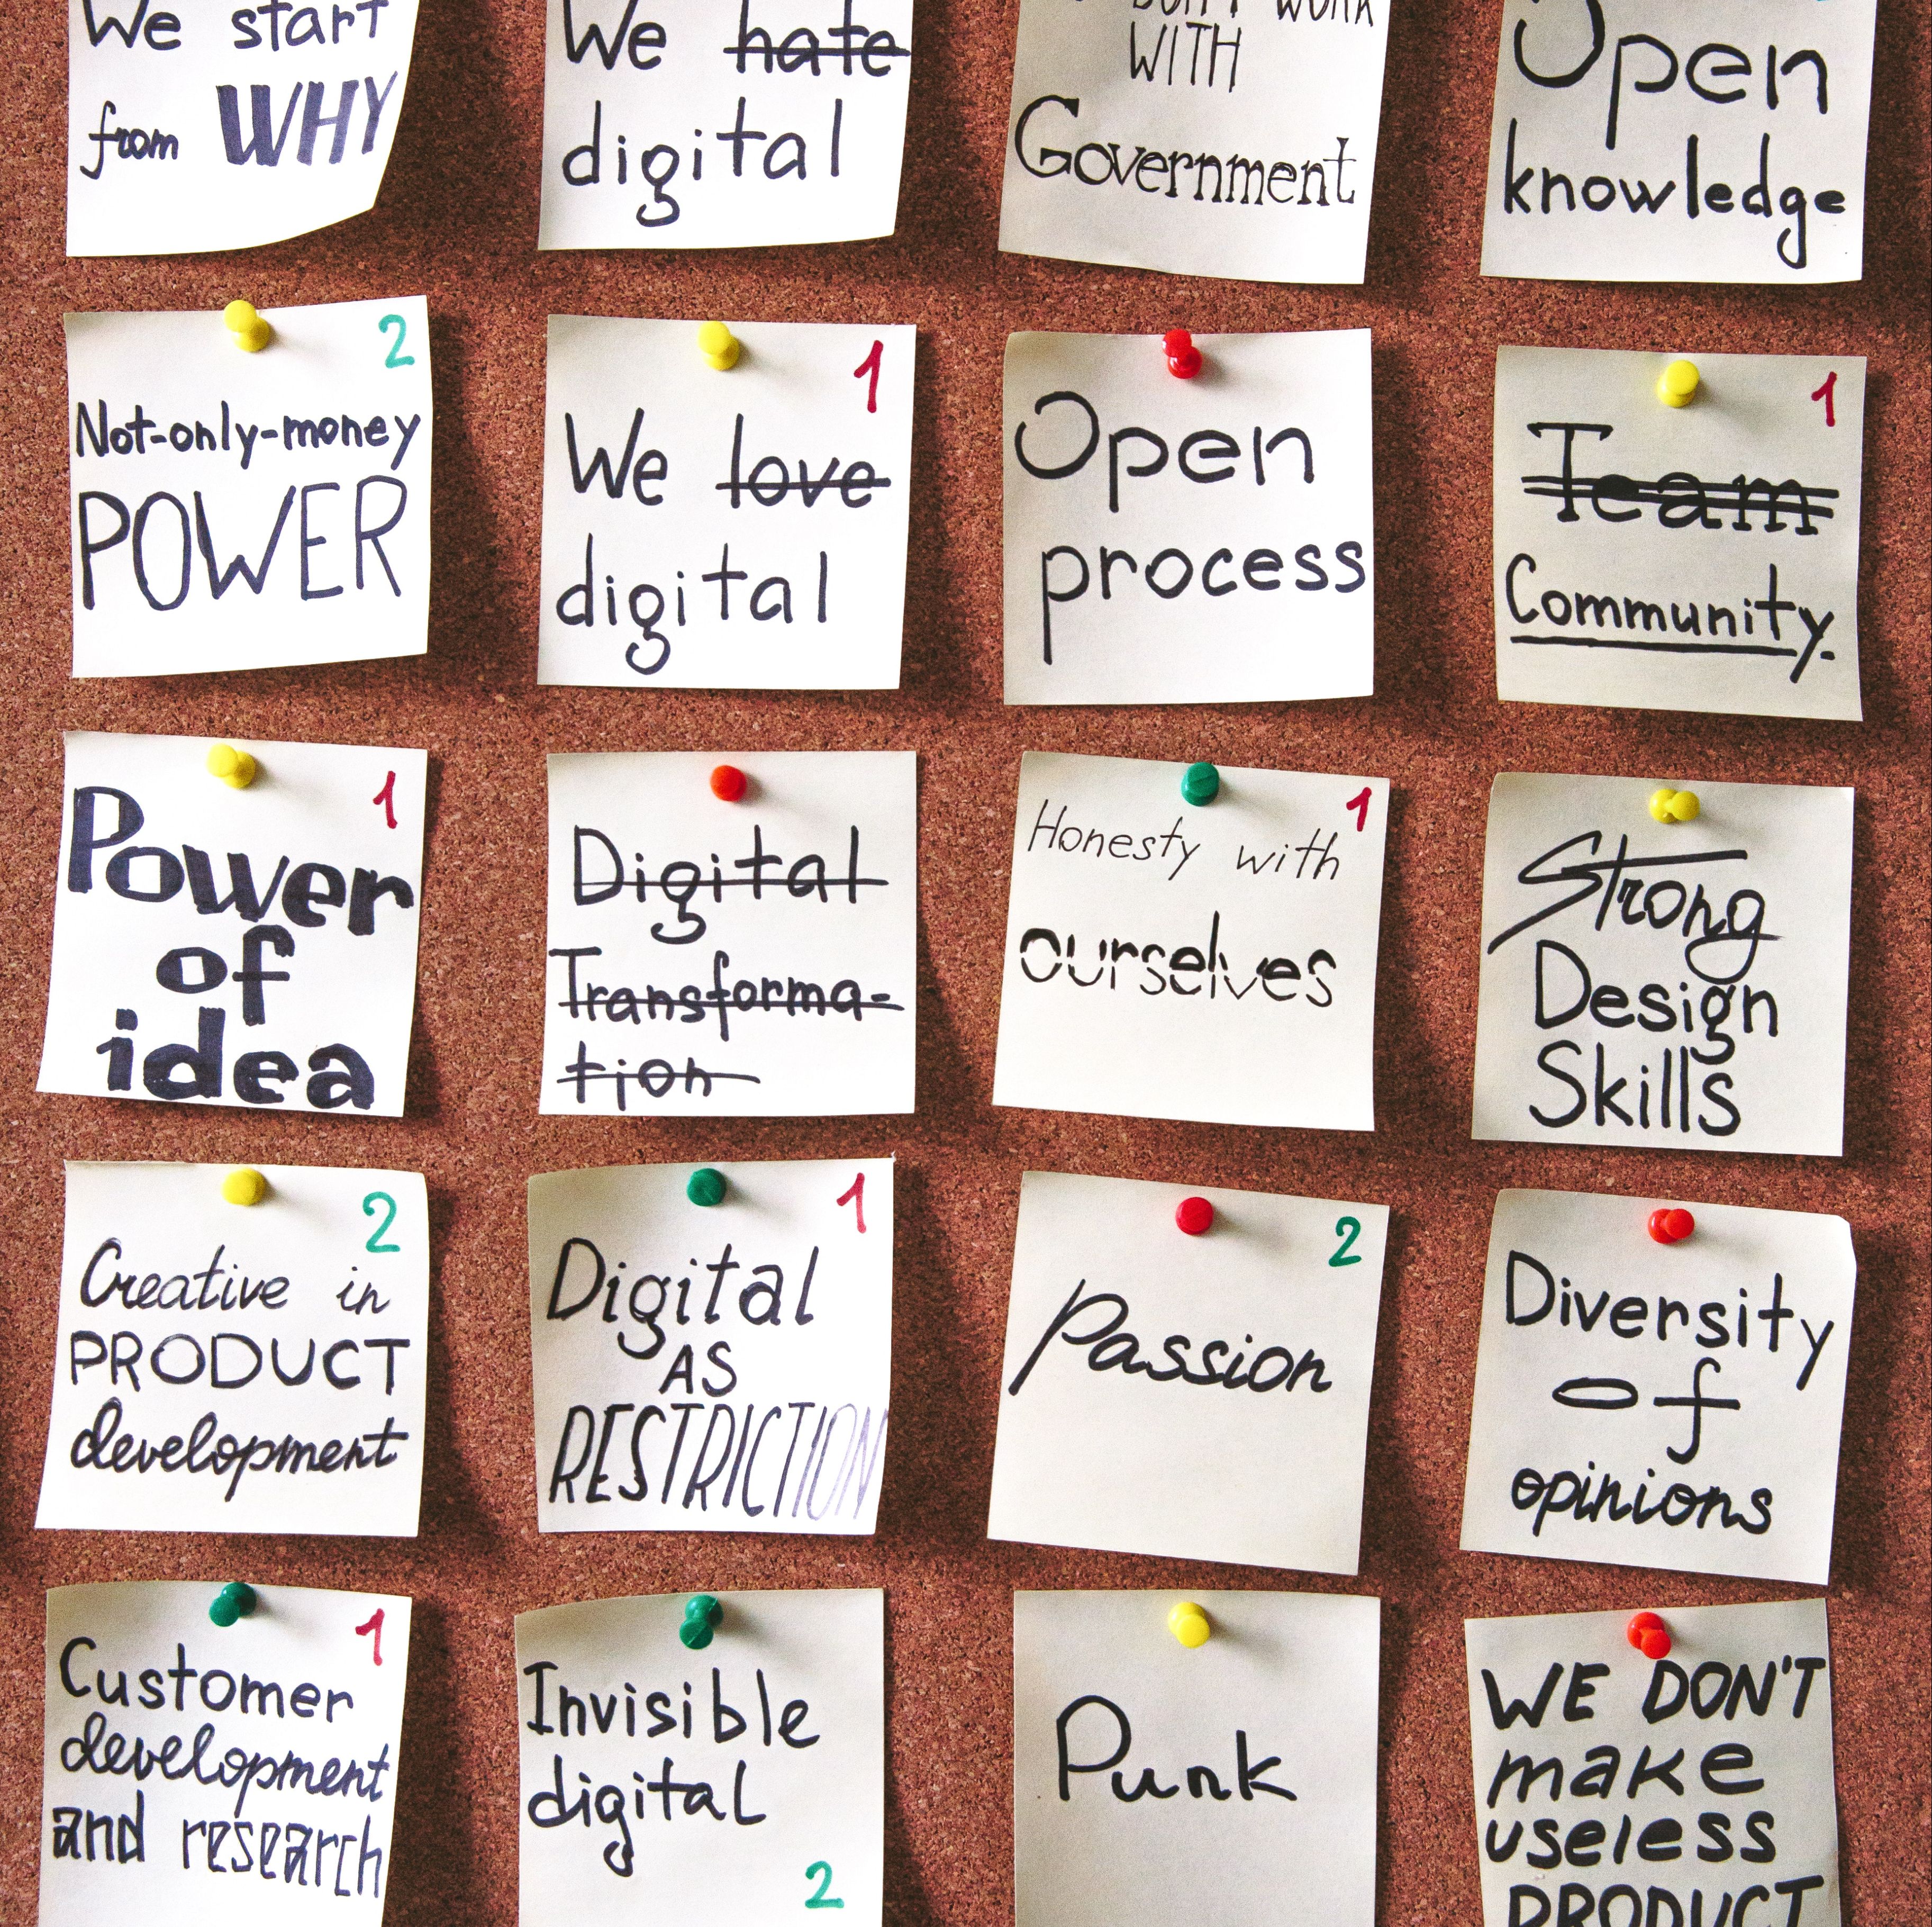 We start
from WHY
We hate
digital
WITH
Government
Open
knowledge
2
Not-only-money
POWER
1
We love
digital
Open
process
1
Team
Community.
1
Power
of
idea
Digital
Transforma-
tion
1
Honesty with
ourselves
Strong
Design
Skills
2
Creative in
PRODUCT
development
1
Digital
AS
RESTRICTION
2
Passion
Diversity
of
opinions
1
Customer
development
and research
Invisible
digital
2
Punk
WE DON'T
make
useless
PRODUCT